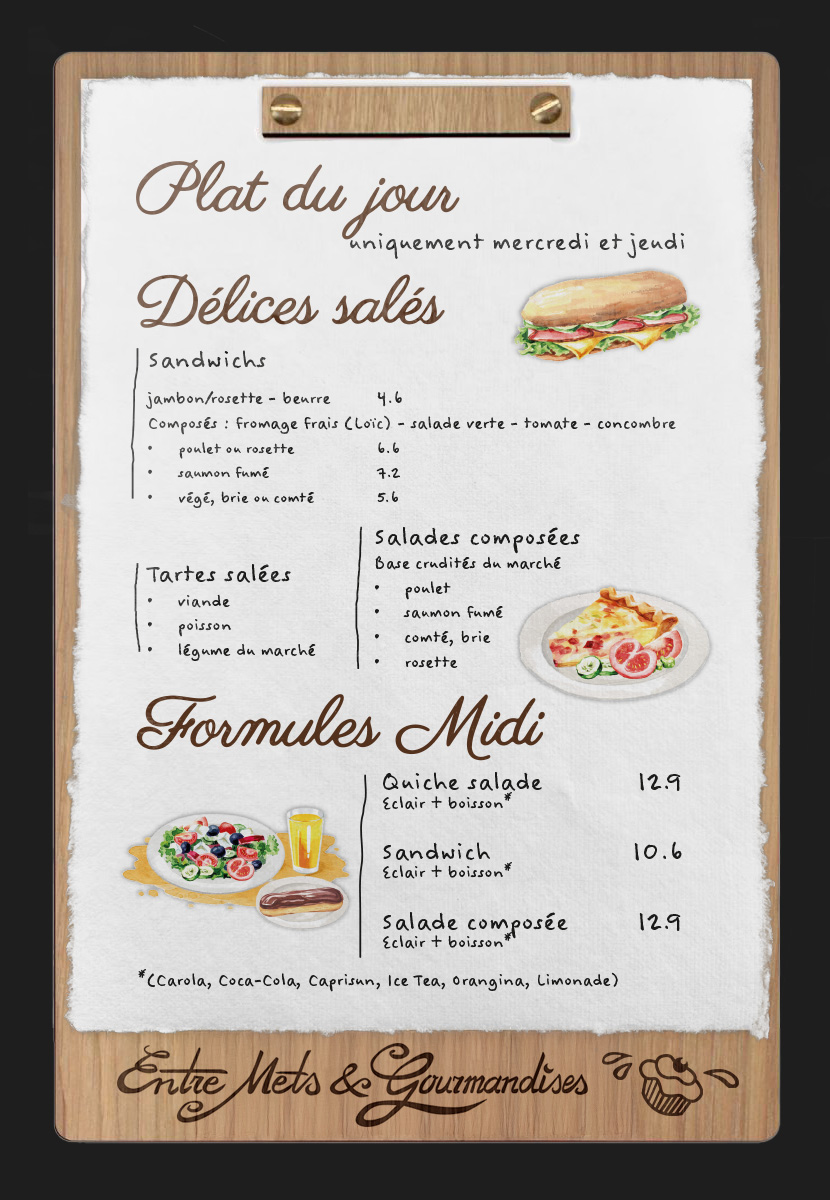 Plat du jour
uniquement mercredi et jeudi
Délices salés
Sandwichs
jambon/rosette - beurre 4.6
Composés : fromage frais (Loïc) - salade verte - tomate - concombre
• poulet ou rosette 6.6
• saumon fumé 7.2
• végé, brie ou comté 5.6
Tartes salées
• viande
• poisson
• légume du marché
Salades composées
Base crudités du marché
• poulet
• saumon fumé
• comté, brie
• rosette
Formules Midi
Quiche salade 12.9
Eclair + boisson*
Sandwich 10.6
Eclair + boisson*
Salade composée 12.9
Eclair + boisson*
*(Carola, Coca-Cola, Caprisun, Ice Tea, Orangina, Limonade)
Entre Mets & Gourmandises